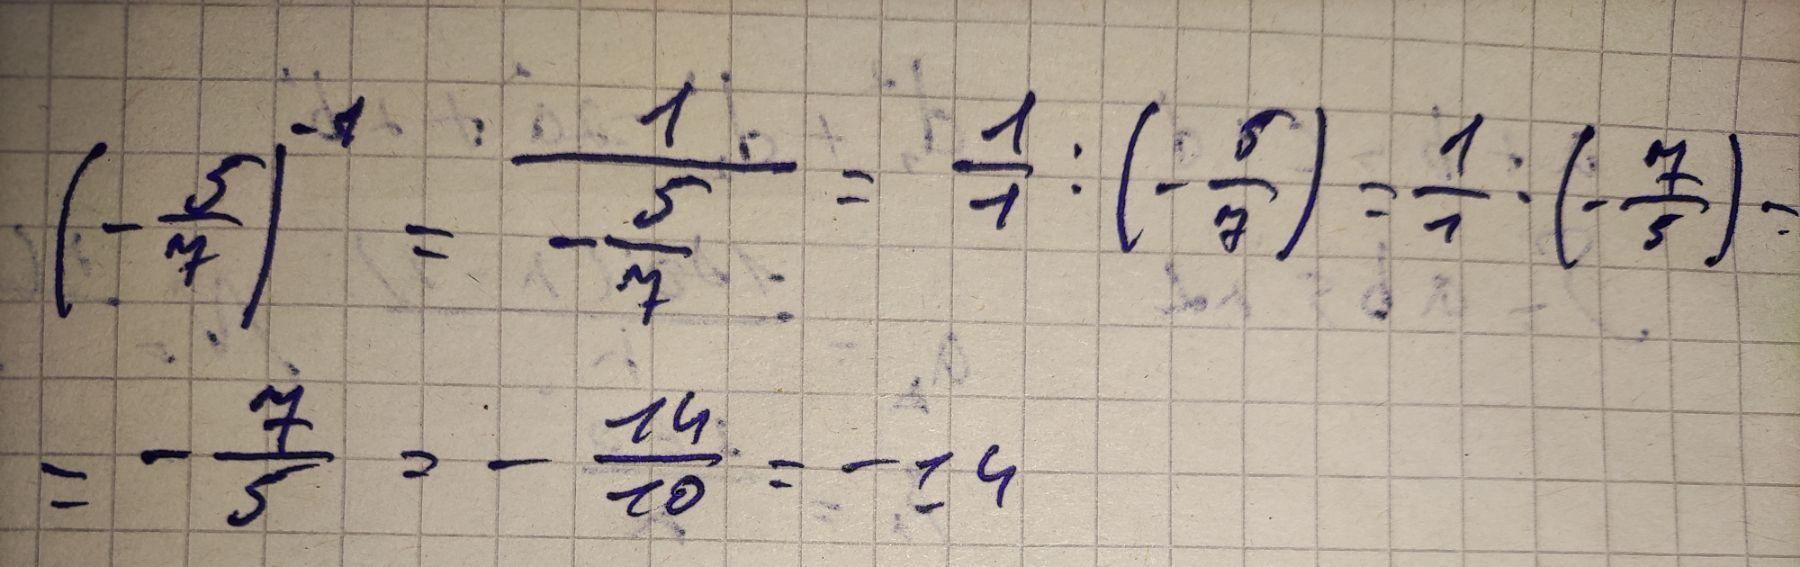 (-5/7)^-1 = 1/(-5/7) = 1/1 : (-5/7) = 1/1 · (-7/5) =
= -7/5 = -14/10 = -1.4